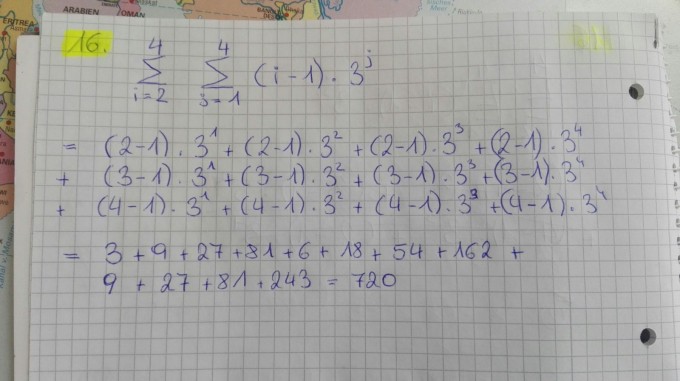 ARABIEN
OMAN
ERITREA
16.
4 4
∑ ∑ (i-1) · 3^j
i=2 j=1
= (2-1) · 3^1 + (2-1) · 3^2 + (2-1) · 3^3 + (2-1) · 3^4
+ (3-1) · 3^1 + (3-1) · 3^2 + (3-1) · 3^3 + (3-1) · 3^4
+ (4-1) · 3^1 + (4-1) · 3^2 + (4-1) · 3^3 + (4-1) · 3^4
= 3 + 9 + 27 + 81 + 6 + 18 + 54 + 162 +
9 + 27 + 81 + 243 = 720